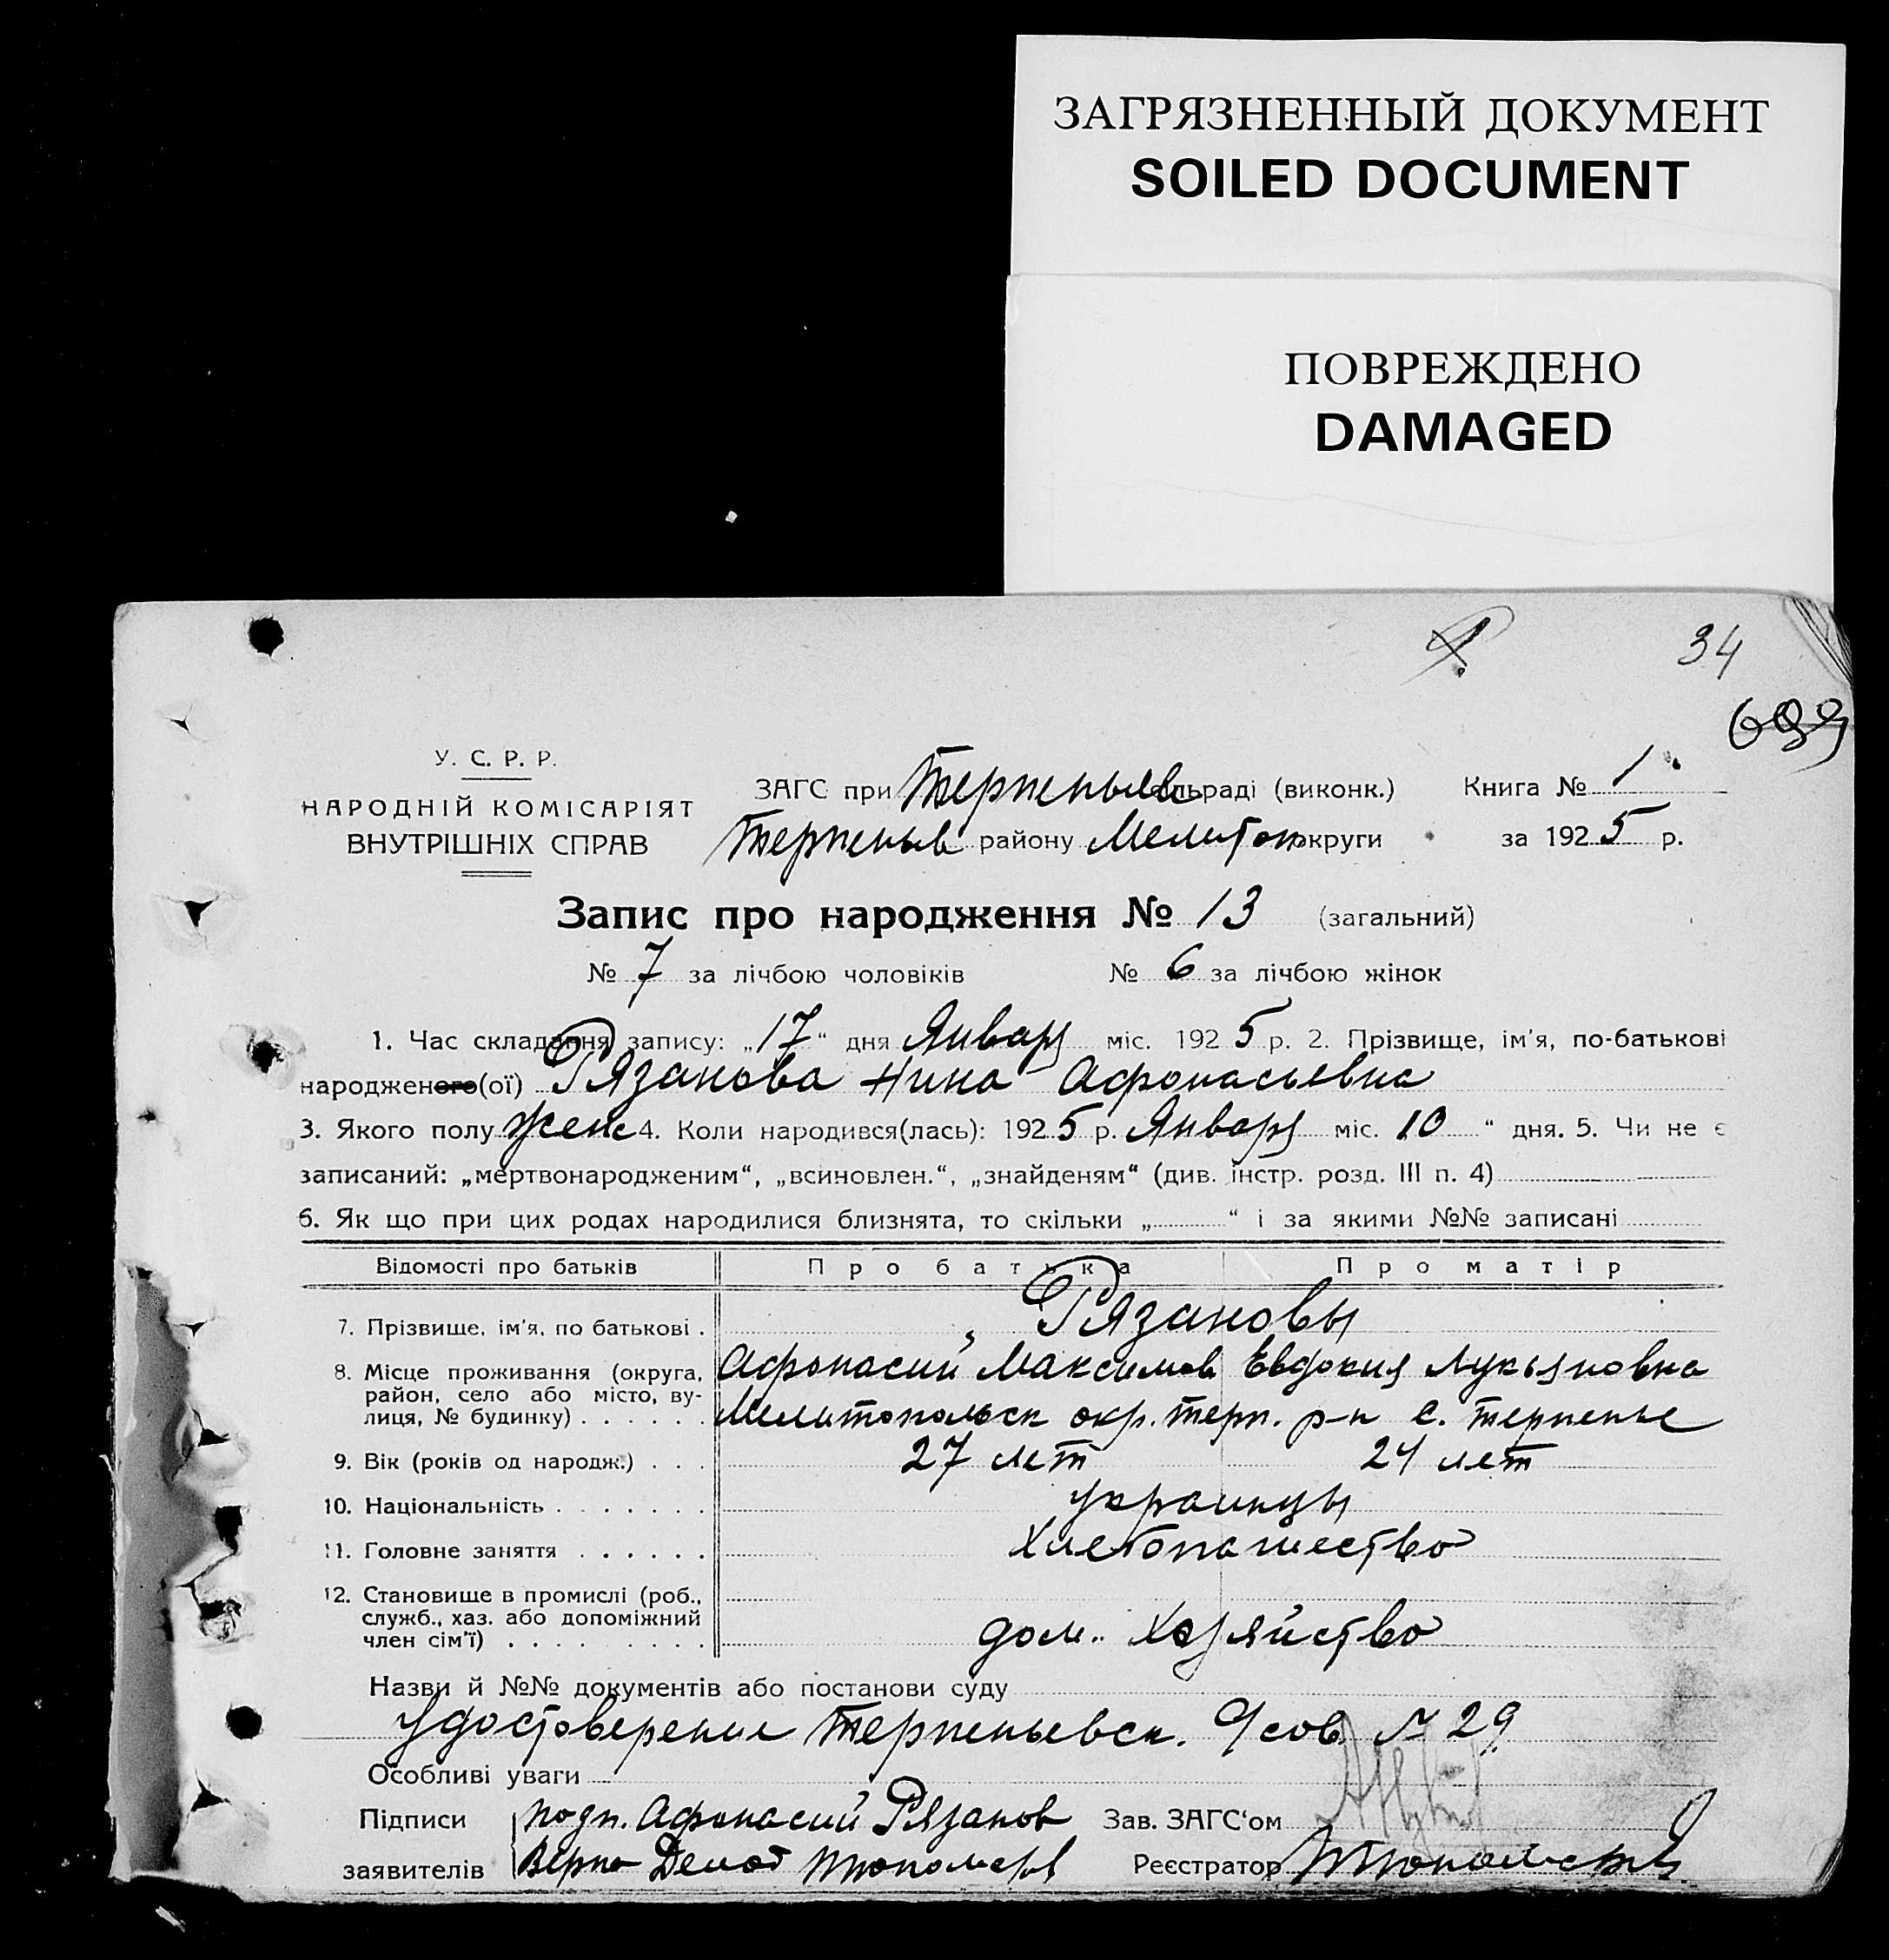 ЗАГРЯЗНЕННЫЙ ДОКУМЕНТ
SOILED DOCUMENT
ПОВРЕЖДЕНО
DAMAGED
34
У. С. Р. Р.
НАРОДНІЙ КОМІСАРІЯТ
ВНУТРІШНІХ СПРАВ
ЗАГС при Терпеньев сільраді (виконк.) Книга № 1
Терпеньев району Мелитоп округи за 1925 р.
Запис про народження № 13 (загальний)
№ 7 за лічбою чоловіків № 6 за лічбою жінок
1. Час складання запису: „17“ дня Января міс. 1925 р. 2. Прізвище, ім'я, по-батькові
народженого(ої) Рязанова Нина Афонасьевна
3. Якого полу женс 4. Коли народився(лась): 1925 р. Января міс. 10 “ дня. 5. Чи не є
записаний: „мертвонародженим“, „всиновлен.“, „знайденям“ (див. інстр. розд. III п. 4)
6. Як що при цих родах народилися близнята, то скільки „ “ і за якими №№ записані
Відомості про батьків Про батька Про матір
7. Прізвище, ім'я, по батькові . Рязановы
8. Місце проживання (округа, Афонасий Максимов Евдокия Лукьяновна
район, село або місто, ву-
лиця, № будинку) . . . . . . Мелитопольск окр. терп. р-н с. терпенье
9. Вік (років од народж.) . . . 27 лет 24 лет
10. Національність . . . . . . . украинцы
11. Головне заняття . . . . . . Хлебопашество
12. Становище в промислі (роб.,
служб., хаз. або допоміжний
член сім'ї) . . . . . . . . . дом. Хозяйство
Назви й №№ документів або постанови суду
Удостоверение Терпеньевск. с/сов. № 29
Особливі уваги
Підписи подп. Афонасий Рязанов Зав. ЗАГС‘ом
заявителів Верно Реєстратор